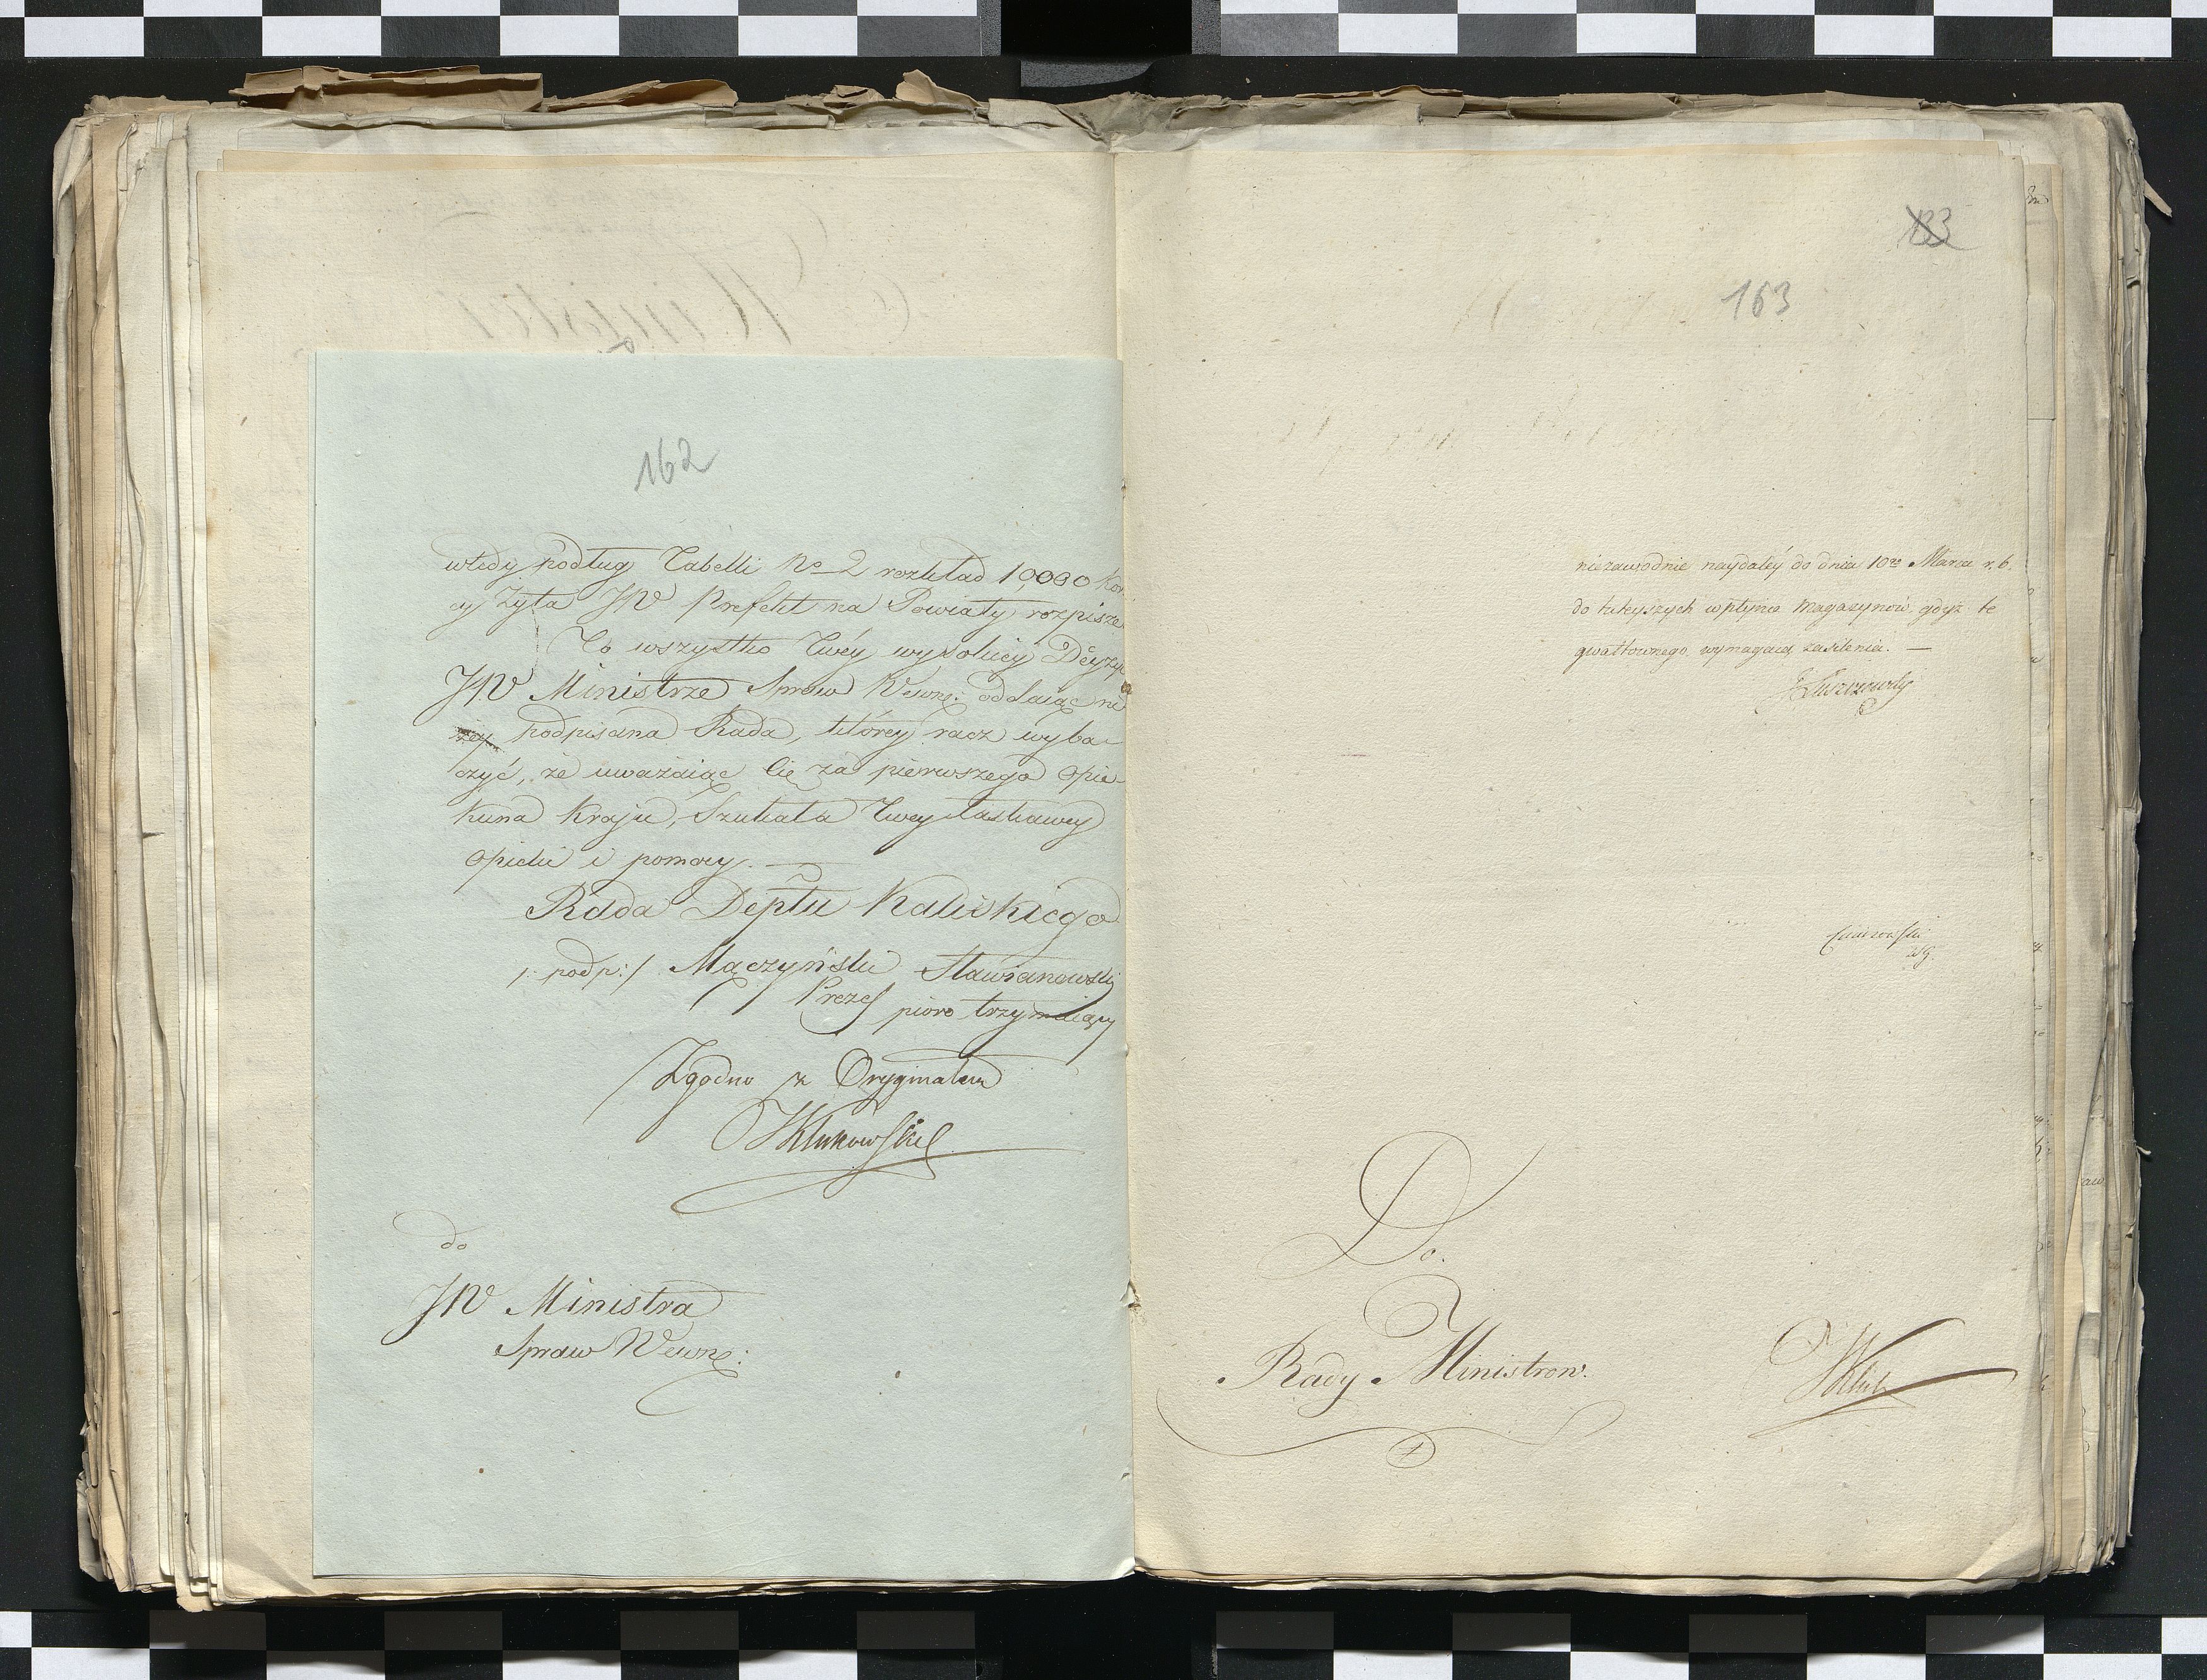 162
wtedy podług Tabelli No 2 rozkład 10,000 kor
cy żyta JW Prefekt na Powiaty rozpisze
To wszystko Twéy wysokiéy Decyzyi
JW Ministrze Spraw Wewnę: oddaiąc ni
żey podpisana Rada, któréy racz wyba-
czyć, że uważaiąc Cię za pierwszego Opie-
kuna Kraju, Szukała Twey łaskawey
Opieki i pomocy. —
Rada Deptu Kaliskiego
/: podp: / Mączyński Stawianowski
Prezes pioro trzymaiący
Zgodno z Oryginałem
do
JW Ministra
Spraw Wewnę:
133
163
niezawodnie naydaléy do dnia 10go Marca r. b.
do tuteyszych wpłynie Magazynów, gdyż te
gwałtownego wymagaią zasilenia. —
Do.
Rady Ministrow.